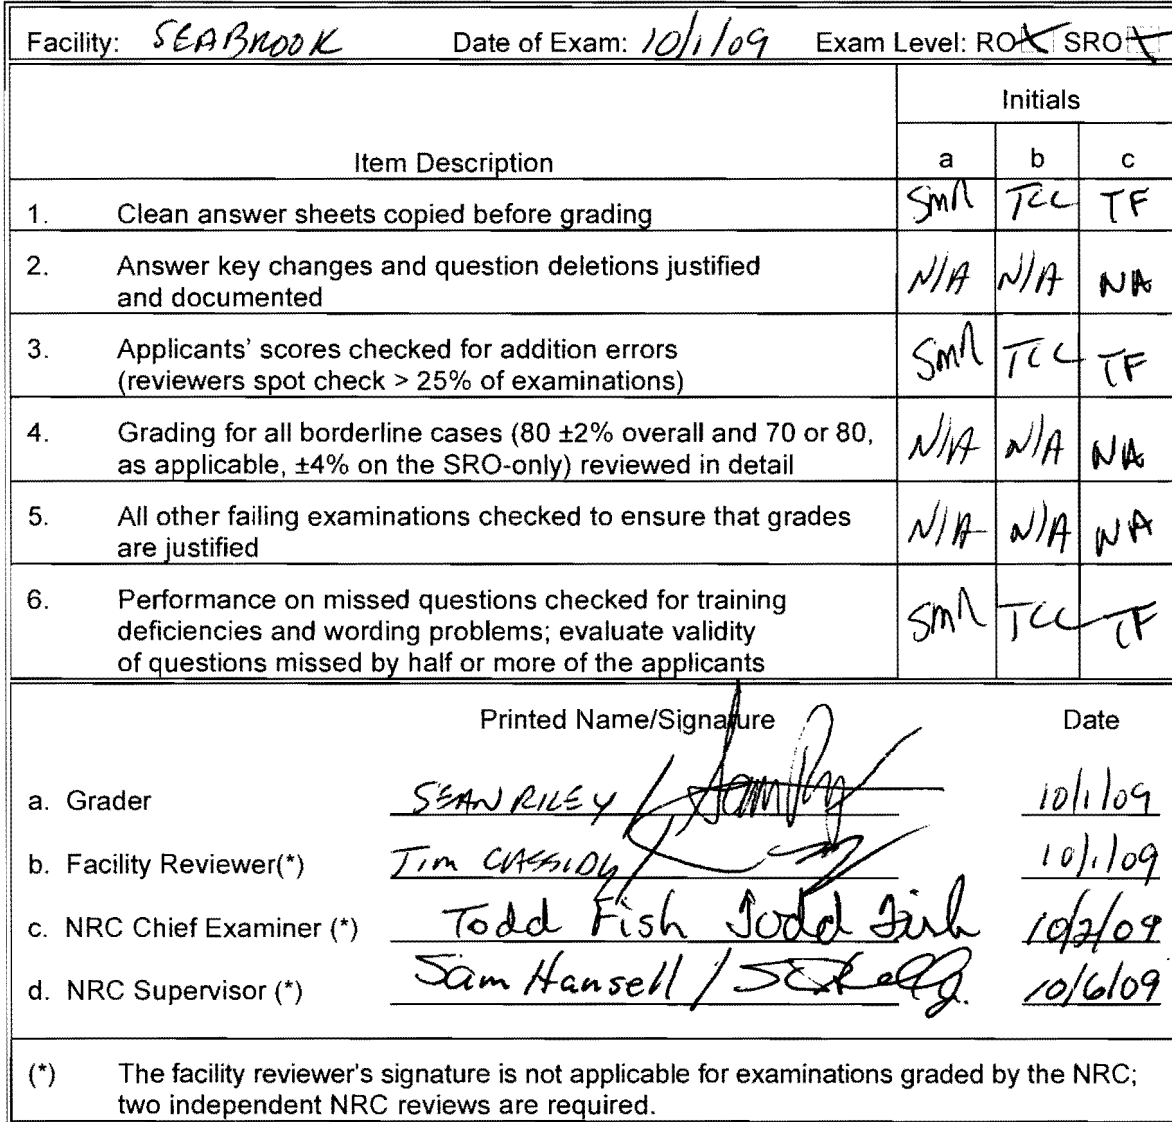 Facility: SEABROOK Date of Exam: 10/1/09 Exam Level: RO X SRO X
Initials
Item Description a b c
1. Clean answer sheets copied before grading SMR TCC TF
2. Answer key changes and question deletions justified
and documented N/A N/A NA
3. Applicants' scores checked for addition errors
(reviewers spot check > 25% of examinations) SMR TCC TF
4. Grading for all borderline cases (80 ±2% overall and 70 or 80,
as applicable, ±4% on the SRO-only) reviewed in detail N/A N/A NA
5. All other failing examinations checked to ensure that grades
are justified N/A N/A NA
6. Performance on missed questions checked for training
deficiencies and wording problems; evaluate validity
of questions missed by half or more of the applicants SMR TCC TF
Printed Name/Signature Date
a. Grader SEAN RILEY / 10/1/09
b. Facility Reviewer(*) Tim CASSIDY / 10/1/09
c. NRC Chief Examiner (*) Todd Fish Todd Fish 10/2/09
d. NRC Supervisor (*) Sam Hansell / 10/6/09
(*) The facility reviewer's signature is not applicable for examinations graded by the NRC;
two independent NRC reviews are required.